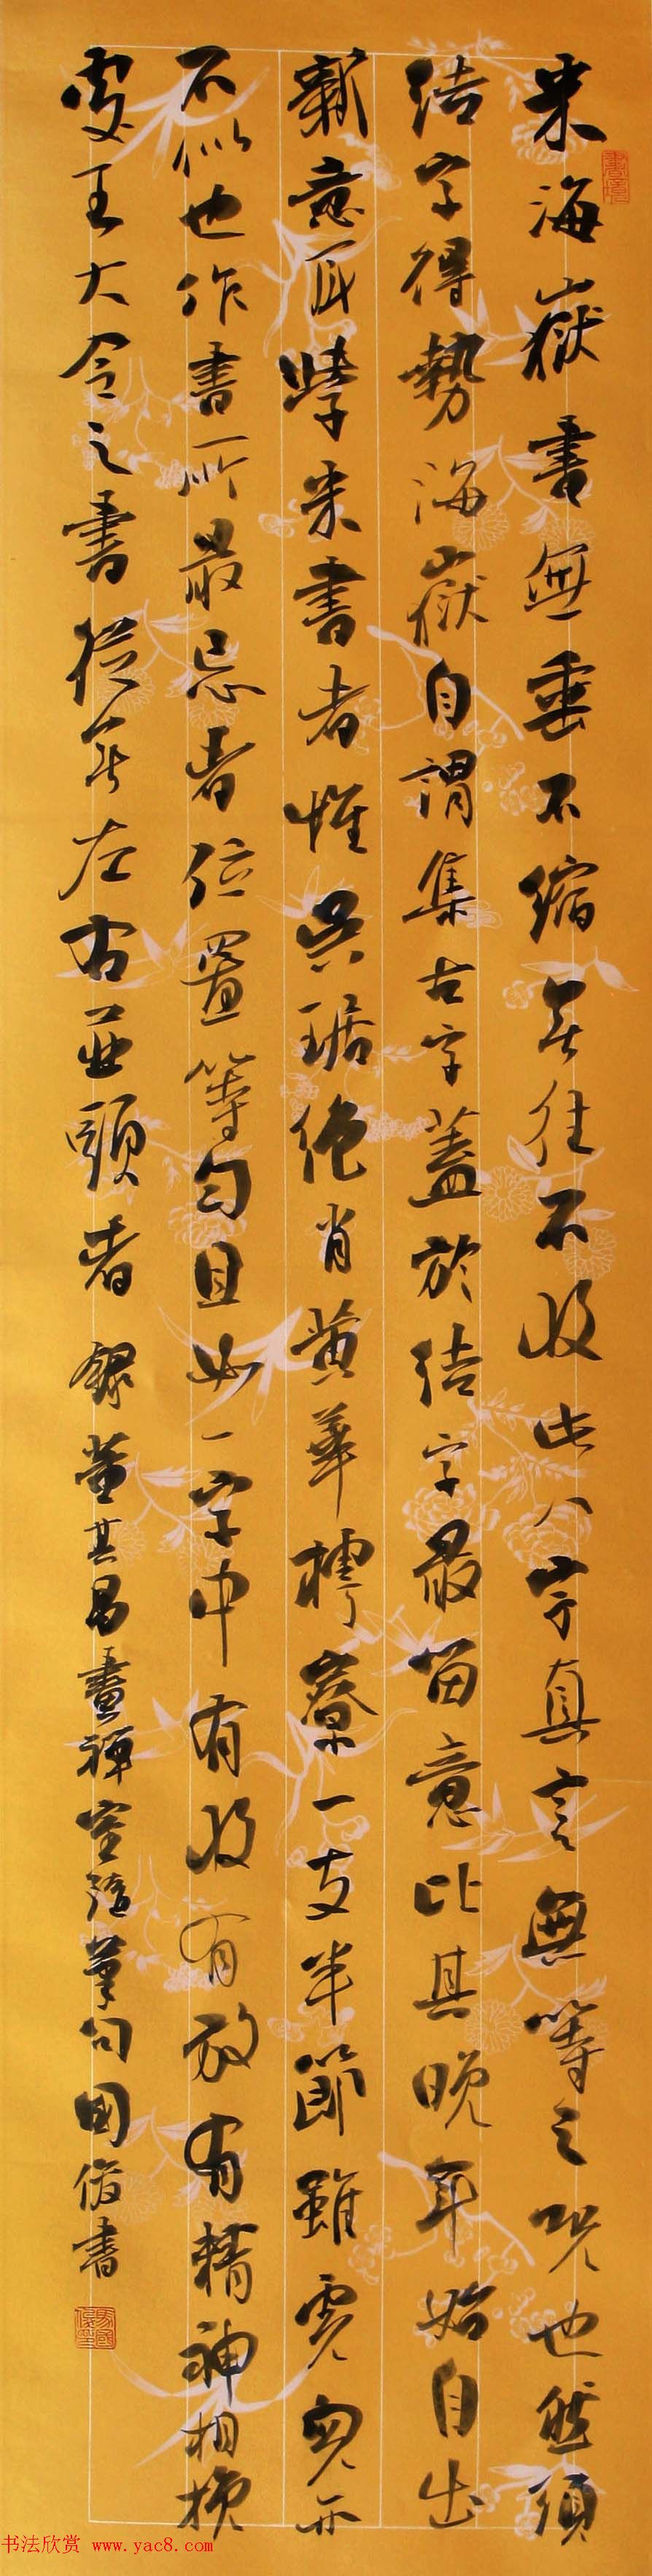 米海嶽書無垂不縮無往不收此八字真言無等之呪也然須
结字得勢海嶽自謂集古字蓋於结字最留意比其晚年始自出
新意耳學米書者惟吳琚絶肖黃華樗寮一支半節雖虎兒亦
不似也作書所最忌者位置等勻且如一字中有收有放有精神相挽
處王大令之書從無左右並頭者 錄董其昌畫禪室隨筆句國俊書
书法欣赏 www.yac8.com